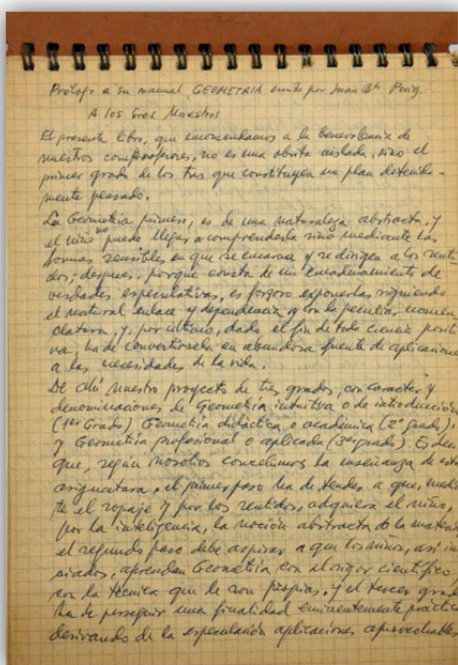 Prólogo a su manual GEOMETRIA escrito por Juan Bta Puig.
A los Sres Maestros
El presente libro, que encomendamos a la benevolencia de
nuestros comprofesores, no es una obrita aislada, sino el
primer grado de los tres que constituyen un plan detenida-
mente pensado.
La Geometría primero, es de una naturaleza abstracta, y
el niño no puede llegar a comprenderla sino mediante las
formas sensibles en que se encarna y se dirigen a los senti-
dos; después, porque consta de un encadenamiento de
verdades especulativas, es forzoso exponerlas siguiendo
el natural enlace y dependencia y con la peculiar nomen
clatura, y, por último, dado el fin de toda ciencia positi
va, ha de convertirsela en abundosa fuente de aplicacione
a las necesidades de la vida.
De ahí nuestro proyecto de tres grados, con caracter y
denominaciones de Geometría intuitiva o de introducción
(1er Grado) Geometría didáctica o academica (2º grado),
y Geometría profesional o aplicada (3er grado) Es decir
que, según nosotros concebimos la enseñanza de esta
asignatura, el primer paso ha de tender a que, media
te el ropaje y por los sentidos, adquiera el niño,
por la inteligencia, la noción abstracta de la materia
el segundo paso debe aspirar a que los niños, así in
ciados, aprendan Geometría con el rigor científico
con la técnica que le son propias, y el tercer grado
ha de perseguir una finalidad eminentemente práctica
derivando de la especulación aplicaciones aprovechables